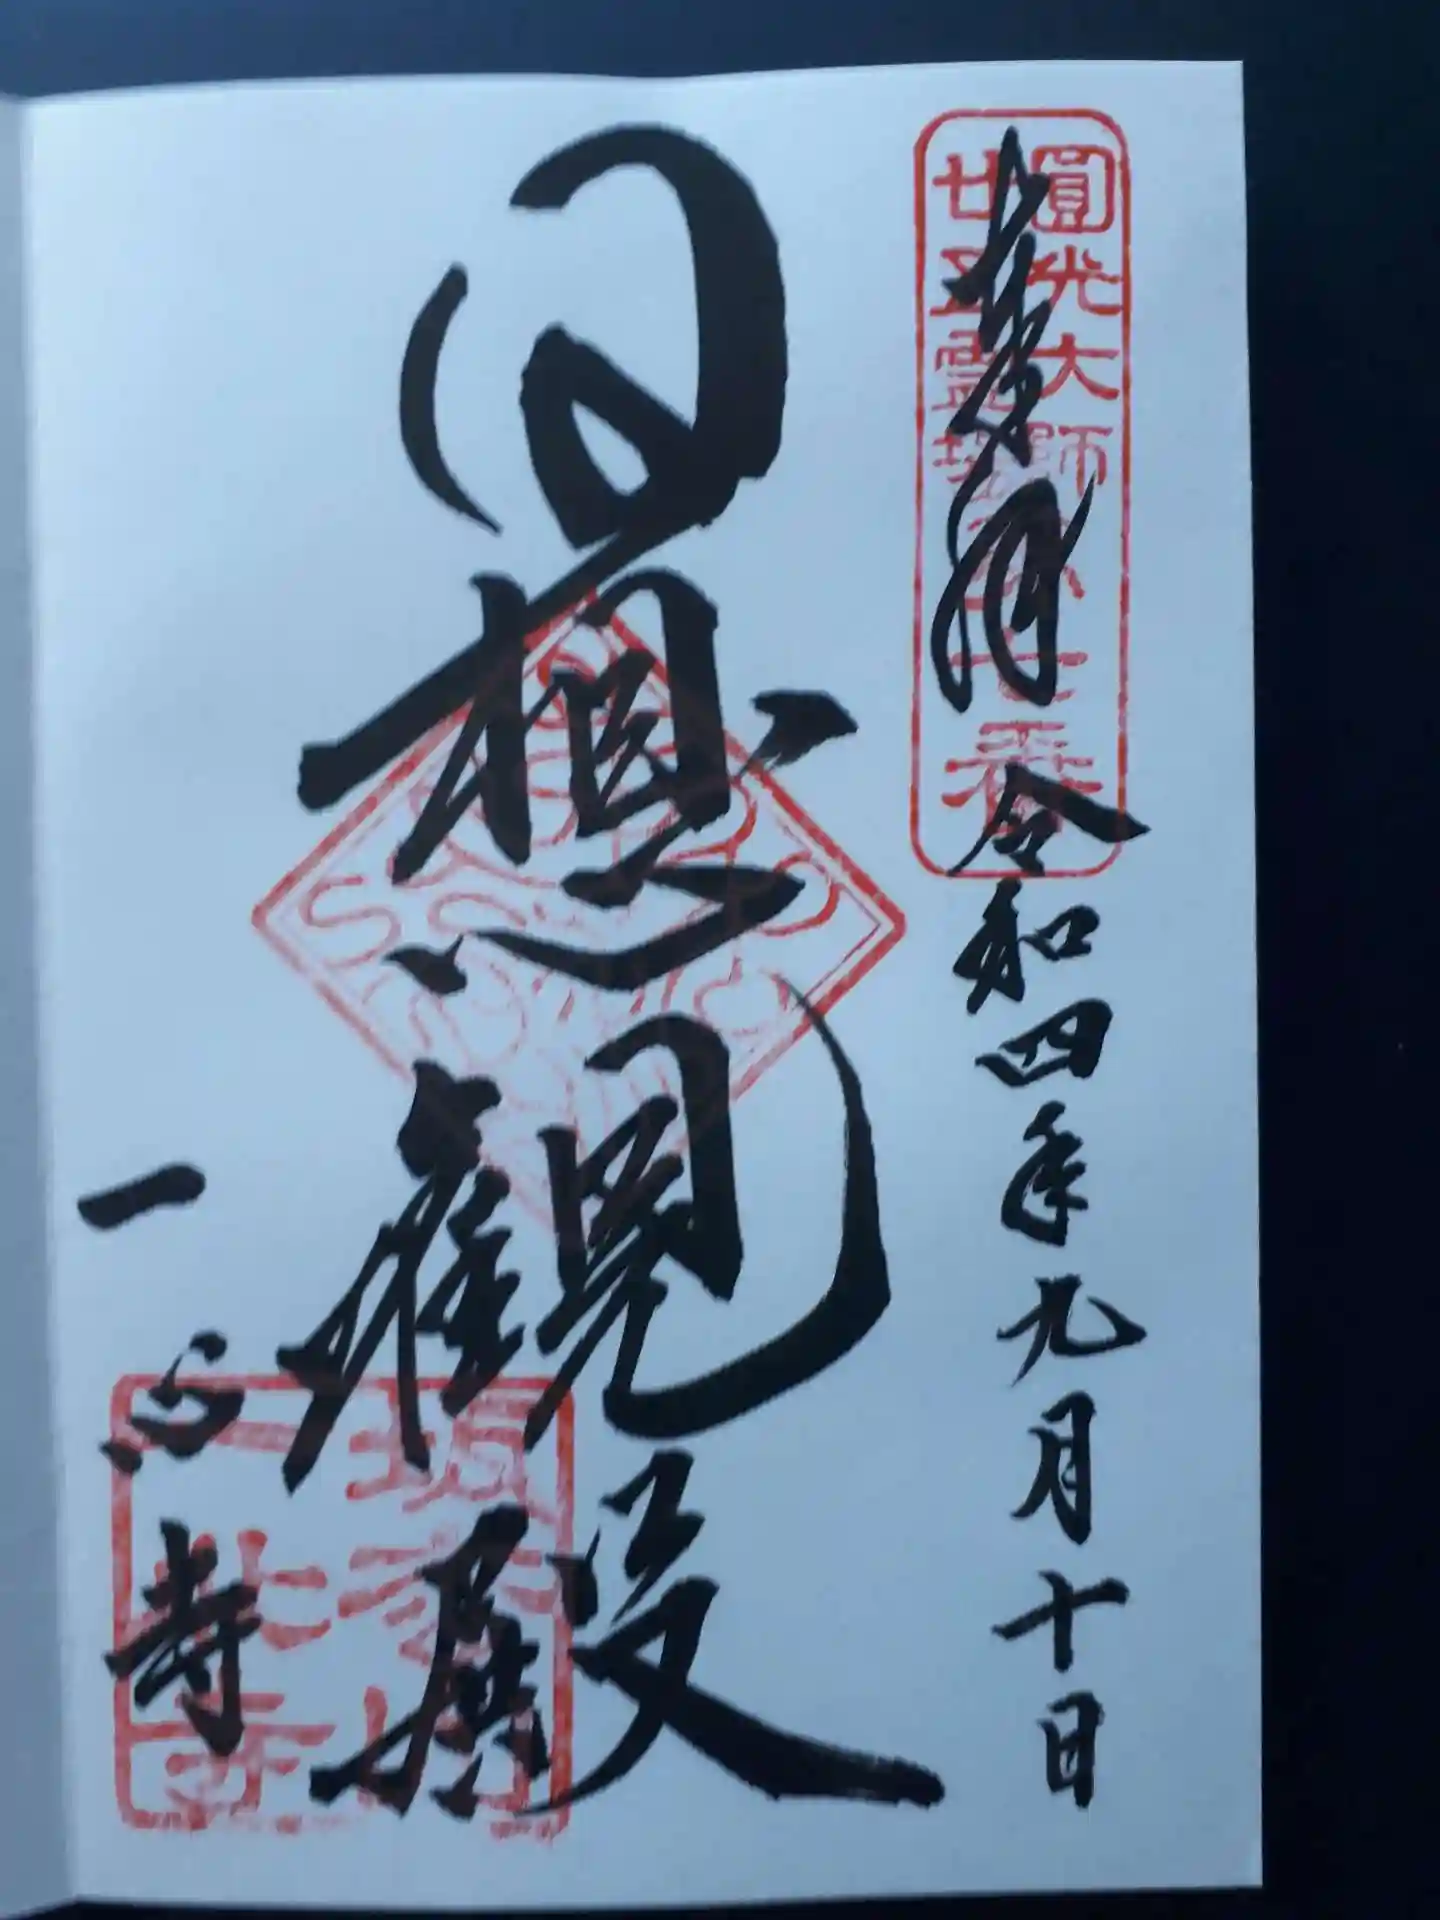 圓光大師
廿五霊場第七番
奉拝
令和四年九月十日
日想観殿
坂松山
一心寺
一心寺